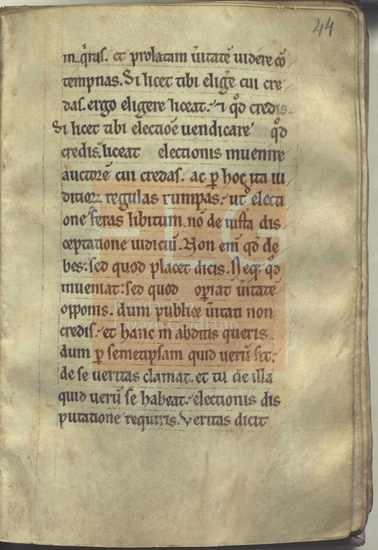 44
inq̃ras. et prolatam ũitatẽ uidere cõ
tempnas. Si licet tibi elig̃e cui cre
das. ergo eligere liceat. ⁊ qͦd credis.
Si licet tibi electioẽ uendicare qͦd
credis. liceat electionis inuenire
auctorẽ cui credas. ac ꝑ hoc ita iu
ditioꝝ regulas rumpas. ut electi
onẽ feras libitum. nõ de iusta dis
ceptatione iudiciũ. Non enĩ qͦd de
bes: sed quod placet dicis. Neqꝫ qͦd
inueniat: sed quod oꝑiat ũitatẽ
opponis. dum publice ũitati non
credis. et hanc in abditis queris.
dum ꝑ semetipsam quid uerũ sit.
de se ueritas clamat. et tu de illa
quid uerũ se habeat. electionis dis
putatione requiris. Veritas dicit